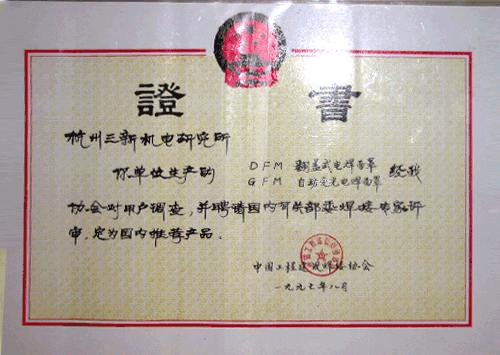 證 書
杭州三新机电研究所
你单位生产的 DFM 翻盖式电焊面罩
GFM 自动变光电焊面罩 经我
协会对用户调查，并聘请国内有关部委焊接专家评
审，定为国内推荐产品。
中国工程建设焊接协会
一九九七年八月